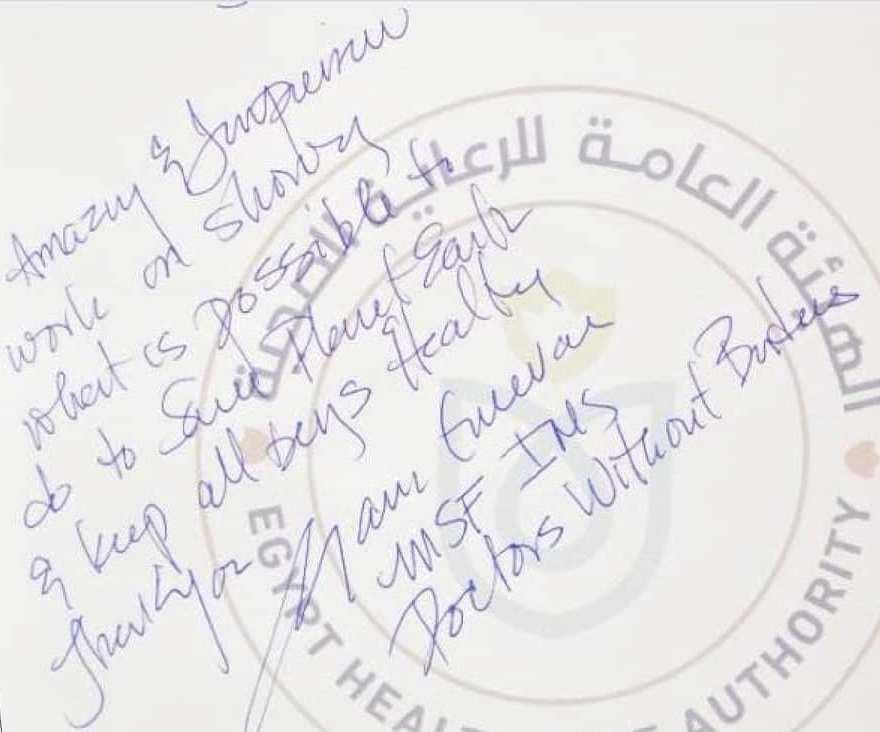 Amazing & Impressive
work on showing
what is possible to
do to Save Planet Earth
& keep all beings Healthy
Thank you
MSF
Doctors Without Borders
الهيئة العامة للرعاية الصحية
EGYPT HEALTHCARE AUTHORITY